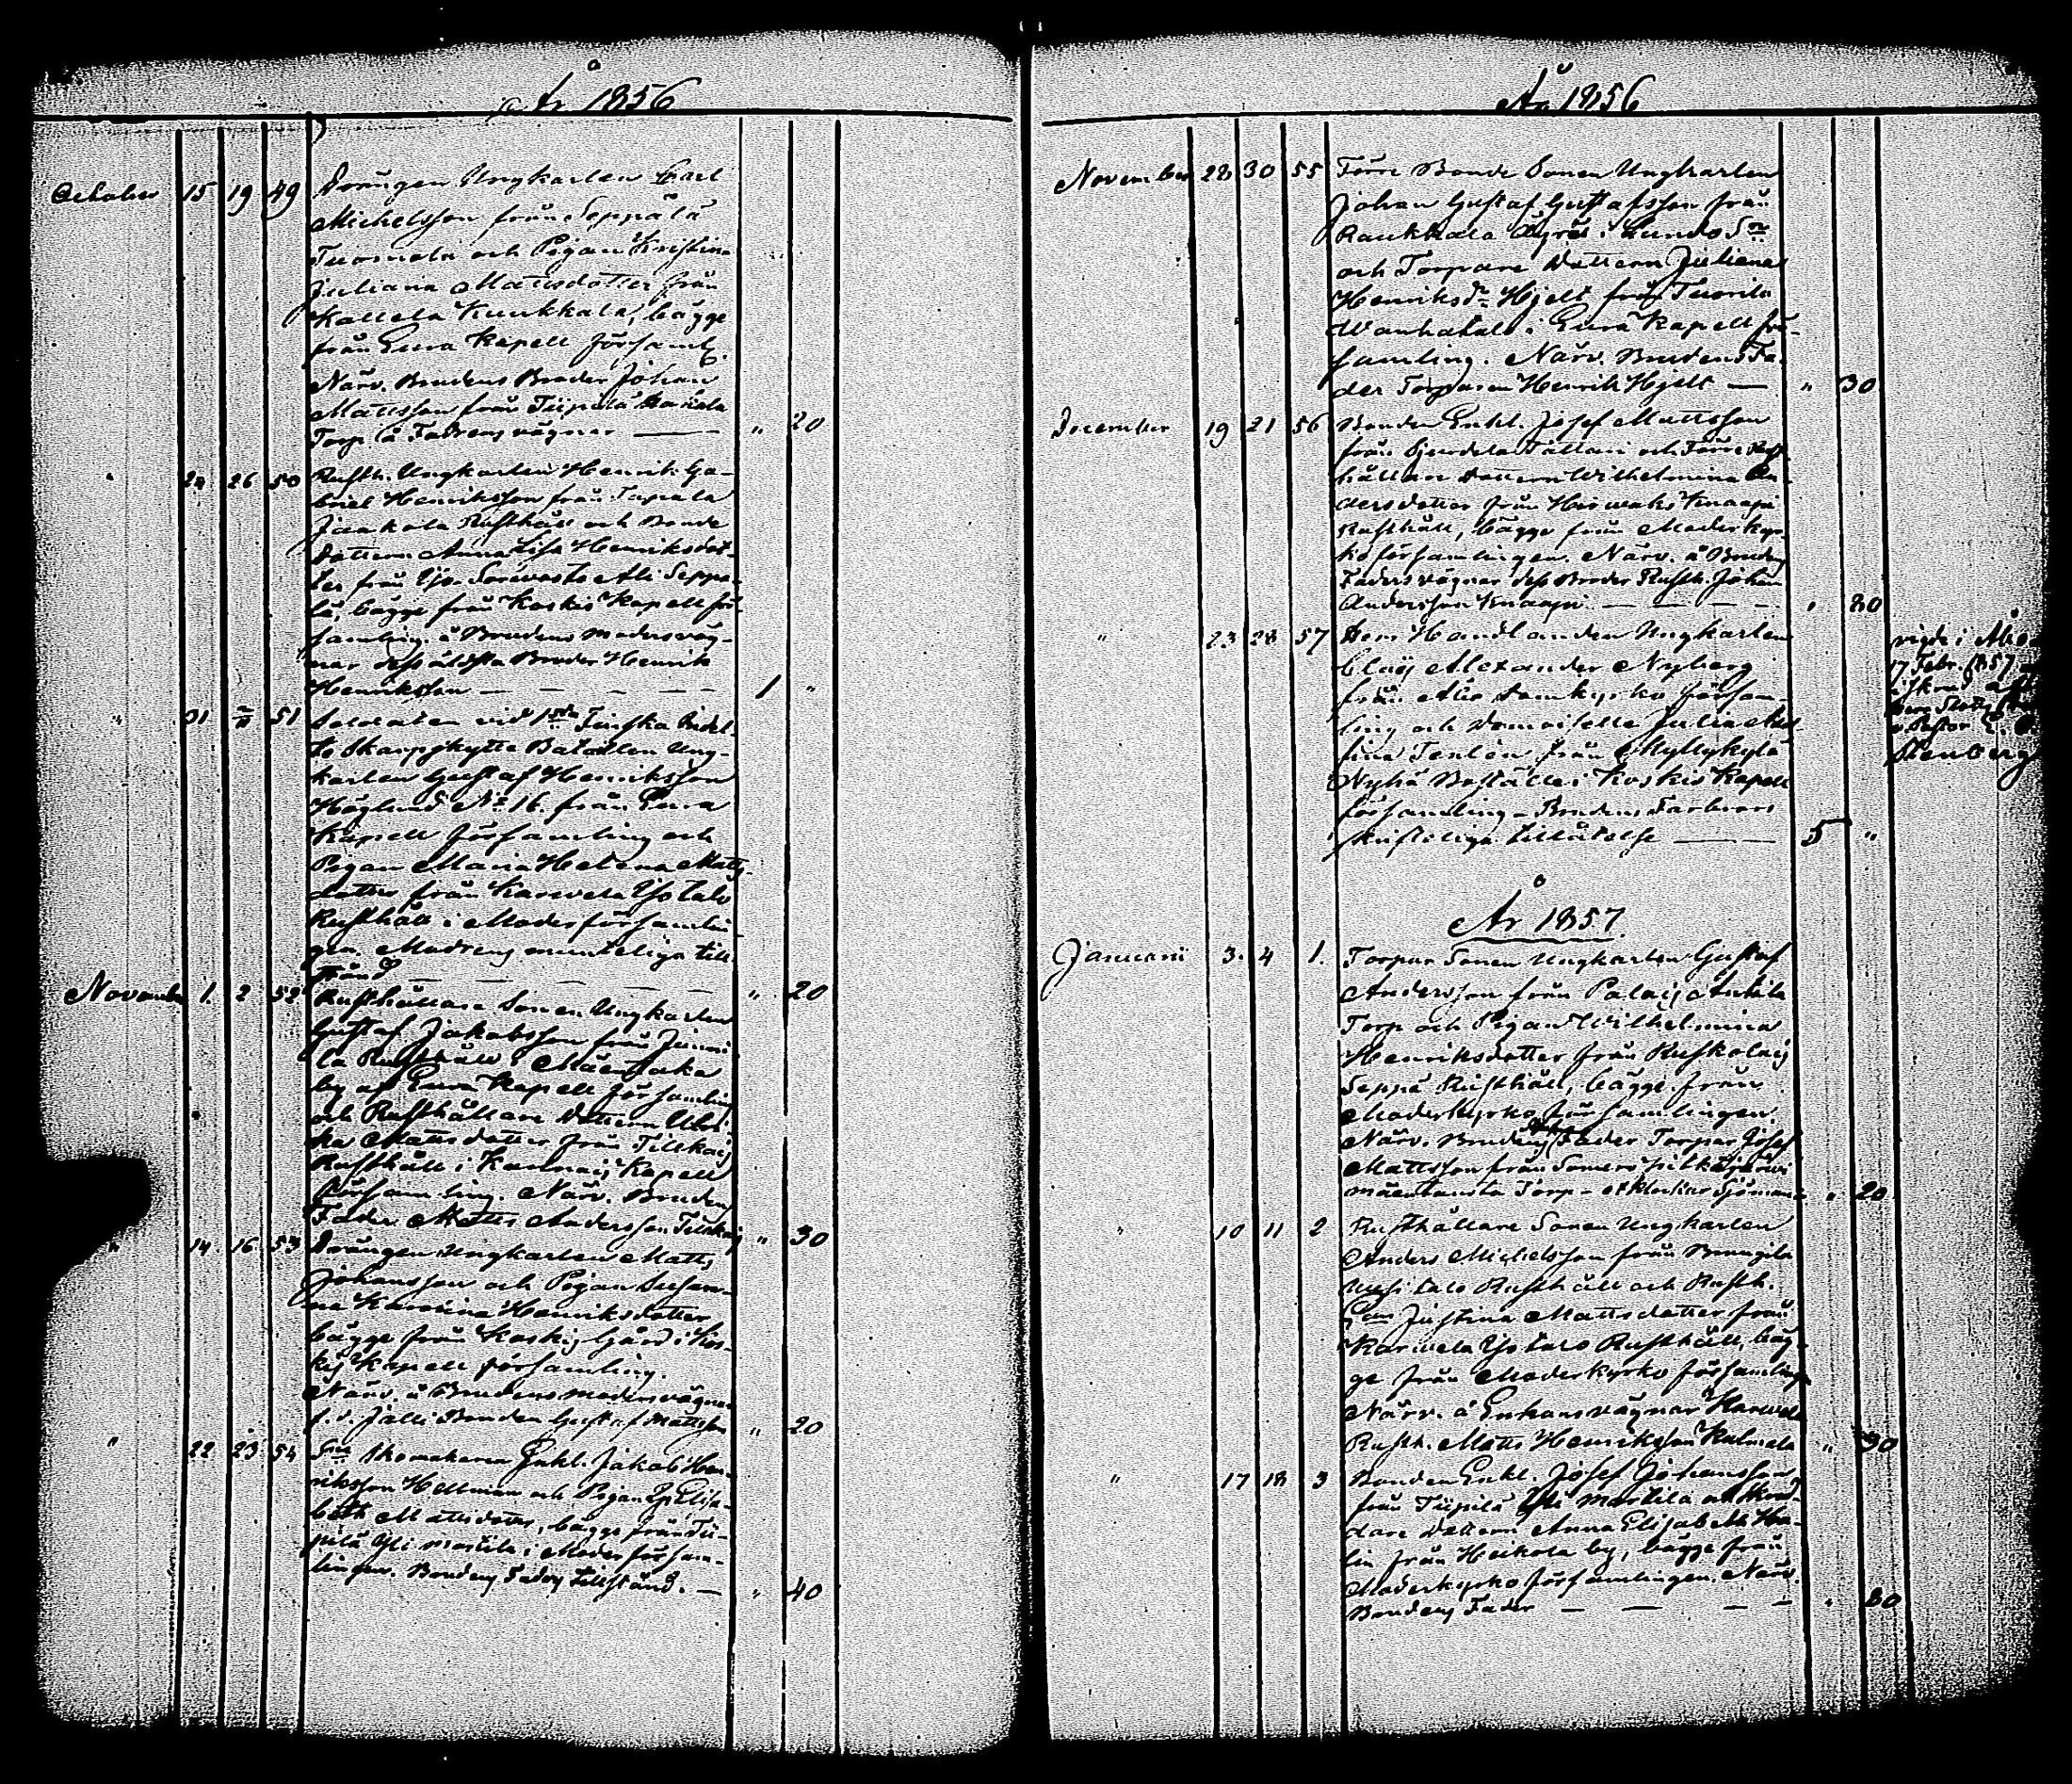 År 1856
October 15 19 49 Drängen Ungkarlen Carl
Michelsson från Seppälä
Tuomola och Pigan Kristina
Juliana Mattsdotter från
Kallela Kuukkala, bägge
från Eura Kapell församl.
Närv. Brudens Broder Johan
Mattsson från Tiipilä
Torp å Fadrens vägnar — " 20
" 24 26 50 Rusth. Ungkarlen Henrik Ga-
briel Henriksson från Tapala
Jaakola Rusthåll och Bonde
Dottern Anna Lisa Henriksdot-
ter från Ylis. Sorvasto Ali Seppä-
lä, bägge från Koskis Kapell för-
samling. å Brudens moders väg-
nar dess äldsta Broder Henrik
Henriksson — — — — 1 "
" 31 2/11 51 Soldaten vid 1sta Finska Indel-
ta Skarpskytte Bataillon Ung-
karlen Gustaf Henriksson
Höglund No 16. från Eura
Kapell församling och
Pigan Maria Helena Matts-
dotter från Karvela Ylistalo
Rusthåll i Moderförsamlin-
gen. Modrens munteliga till-
stånd — — — — " 20
November 1. 2 52 Rusthållare Sonen Ungkarlen
Gustaf Jakobsson från Junni-
la Rusthåll i Mäentaka
by af Eura Kapell församling
och Rusthållare Dottern Ulri-
ka Mattsdotter från Tillkais
Rusthåll i Karinais Kapell
församling. Närv. Brudens
Fader Matts Andersson Tillkais " 30
" 14 16 53 Drängen Ungkarlen Matts
Johansson och Pigan Susan-
na Karolina Henriksdotter,
bägge från Koskis Gård i Kos-
kis Kapell församling.
Närv. å Brudens moders vägnar
f.d. Jälli Bonden Gustaf Mattsson " 20
" 22 23 54 Sne Skomakaren Enkl. Jakob Hen-
riksson Hellman och Pigan Elisa-
beth Mattsdotter, bägge från Tii-
pilä Yli martila i Moderförsam-
lingen. Brudens Faders tillstånd. — " 40
År 1856
November 28 30 55 Förre Bonde Sonen Ungkarlen
Johan Gustaf Gustafsson från
Raukkala Äyräs i Lundo Sn
och Torpare Dottern Juliana
Henriksdr Hjelt från Tuorila
Wanhatalo i Eura Kapell för-
samling. Närv. Brudens Fa-
der Torparen Henrik Hjelt — " 30
December 19 21 56 Bonden Enkl. Josef Mattsson
från Tallari och Förre Rust-
hållare Dottern Wilhelmina An-
dersdotter från Hirvaks Knaapi
Rusthåll, bägge från Moderkyr-
koförsamlingen. Närv. å Brudens
Faders vägnar dess Broder Rusth. Johan
Andersson Knaapi — — — — " 20
" 23 28 57 Hem Handlanden Ungkarlen
Claës Alexander Nyberg
från Åbo Domkyrko försam-
ling och Demoiselle Julia Adel-
fina Tenlén från Myllykylä
Nyhä Boställe i Koskis Kapell
församling. Brudens Farbrors
skrifteliga tillåtelse — 5 "
vigde i Åbo
17 Febr. 1857
Stenberg
År 1857.
Januarii 3. 4 1. Torpar Sonen Ungkarlen Gustaf
Andersson från Palais Anttila
Torp och Pigan Wilhelmina
Henriksdotter från Ruskolais
Seppä Rusthåll, bägge från
Moderkyrko församlingen
Närv. Brudens Fader Torpar Josef
Mattsson från Somero
mäentausta Torp — " 20
" 10 11 2 Rusthållare Sonen Ungkarlen
Anders Michelsson från Prungila
Uusitalo Rusthåll och Rusth.
Enkan Justina Mattsdotter från
Karvela Ylistalo Rusthåll, bäg-
ge från Moderkyrko församling
Närv. å Enkans vägnar Karvela
Rusth. Matts Henriksson Kulmala " 30
" 17 18 3 Bonden Enkl. Josef Johansson
från Tiipilä Yli Martila och Skräd-
dare Dottern Anna Elisabeth Ha-
lin från Heikola by, bägge från
Moderkyrko församlingen. Närv.
Brudens Fader — — — — " 20